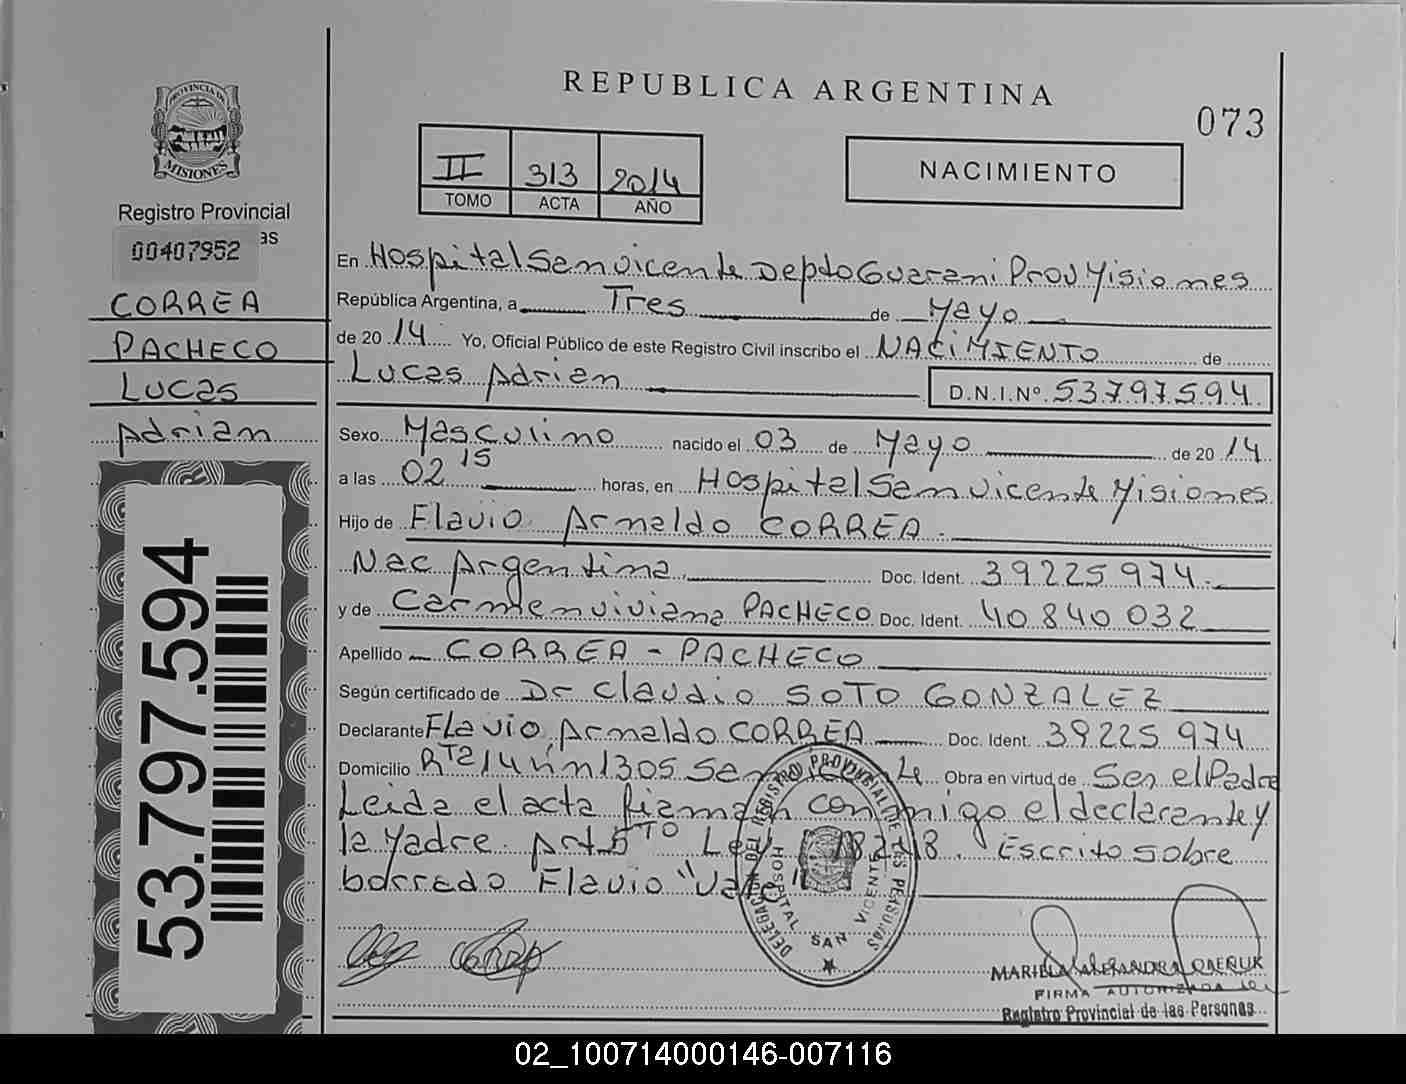 REPUBLICA ARGENTINA
073
PROVINCIA DE MISIONES
Registro Provincial
as
00407952
CORREA
PACHECO
Lucas
Adrian
53.797.594
II 313 2014
TOMO ACTA AÑO
NACIMIENTO
En Hospital San Vicente Depto Guarani Prov Misiones
República Argentina, a Tres de Mayo
de 20 14 Yo, Oficial Público de este Registro Civil inscribo el NACIMIENTO de
Lucas Adrian D.N.I.Nº 53797594
Sexo Masculino nacido el 03 de Mayo de 20 14
a las 02 15 horas, en Hospital San Vicente Misiones
Hijo de Flavio Arnaldo CORREA.
Nac Argentina Doc. Ident. 39225974.
y de Carmen Viviana PACHECO Doc. Ident. 40840032
Apellido CORREA - PACHECO
Según certificado de Dr Claudio SOTO GONZALEZ
Declarante Flavio Arnaldo CORREA Doc. Ident. 39225974
Domicilio RTa 14 km 1305 San Vicente Obra en virtud de Ser el Padre
Leida el acta firman conmigo el declarante y
la Madre. Art 5TO Ley 18248. Escrito sobre
borrado "Flavio" Vale"
DELEGACION DEL REGISTRO PROVINCIAL DE LAS PERSONAS
HOSPITAL SAN VICENTE
FIRMA AUTORIZADA
Registro Provincial de las Personas
02_100714000146-007116